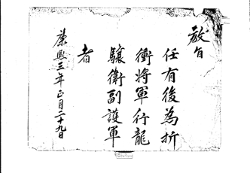 敎旨
任有後為折
衝將軍行龍
驤衛副護軍
者
康熙三年正月二十九日